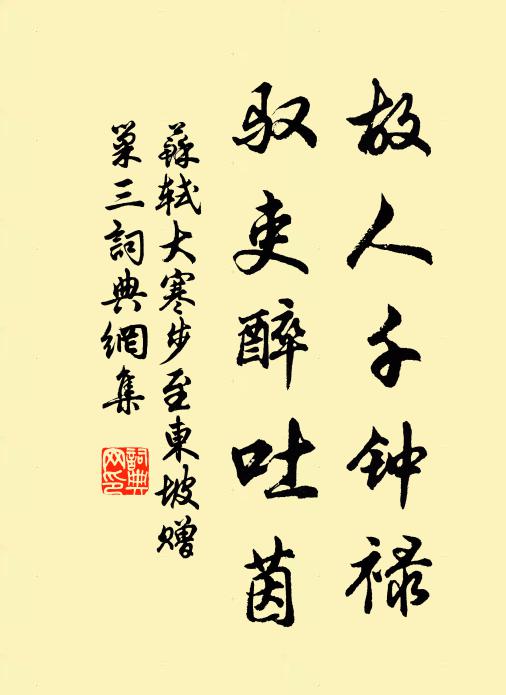 故人千钟禄
驭吏醉吐茵
蘇軾大寒步至東坡贈
巢三詞典網集
詞典
网印